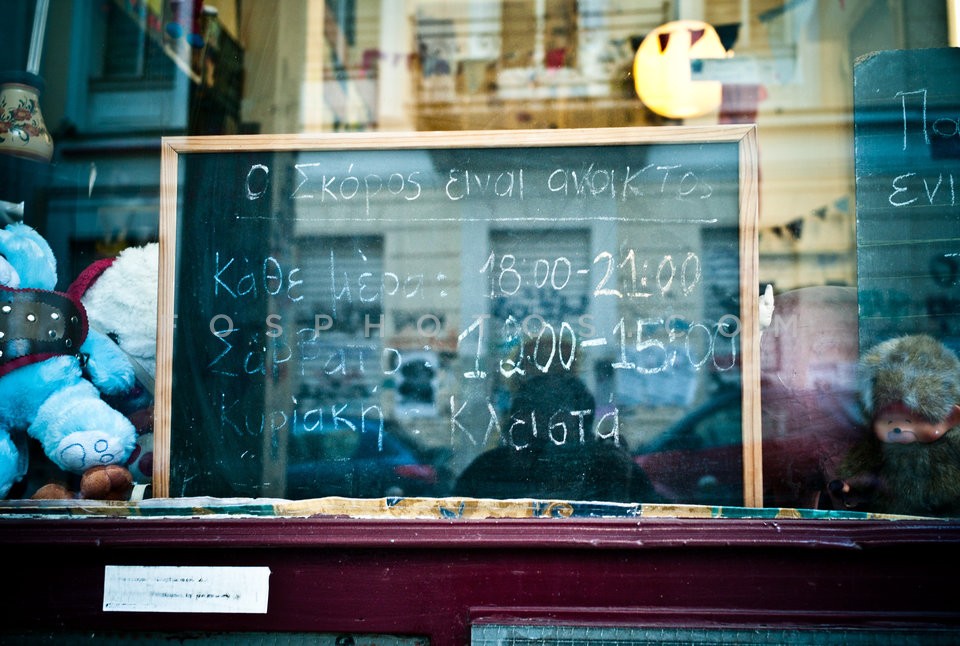 Ο Σκόρος είναι ανοικτός
Κάθε μέρα: 18:00-21:00
Σάββατο: 12:00-15:00
Κυριακή: Κλειστά
FOSPHOTOS.COM